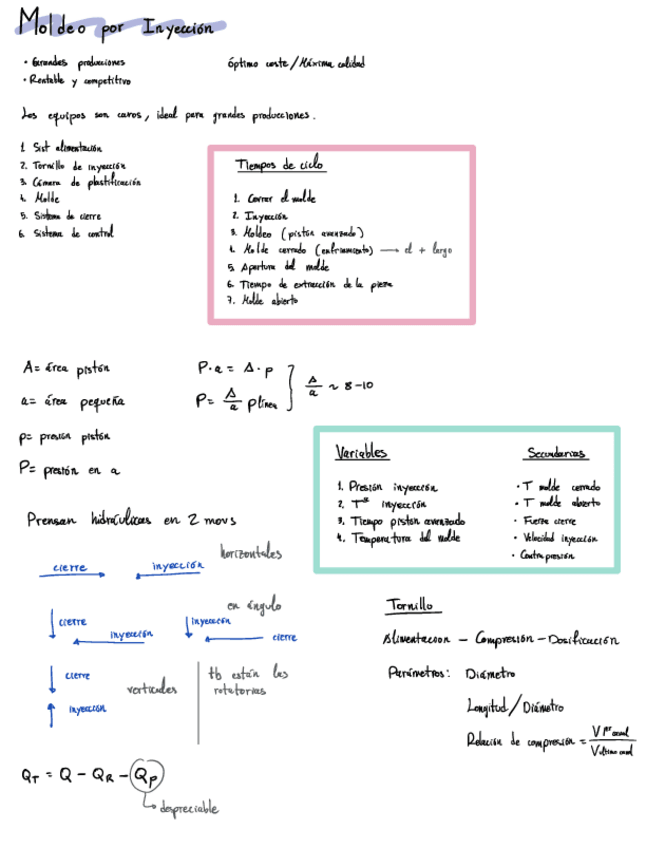 Moldeo por Inyección
• Grandes producciones
• Rentable y competitivo
óptimo coste/Máxima calidad
Los equipos son caros, ideal para grandes producciones.
1. Sist alimentación
2. Tornillo de inyección
3. Cámara de plastificación
4. Molde
5. Sistema de cierre
6. Sistema de control
Tiempos de ciclo
1. Cerrar el molde
2. Inyección
3. Moldeo (pistón avanzado)
4. Molde cerrado (enfriamiento) → el + largo
5. Apertura del molde
6. Tiempo de extracción de la pieza
7. Molde abierto
A= área pistón
a= área pequeña
p= presión pistón
P= presión en a
P·a = A·p
P= A/a plínea
A/a ~ 8-10
Variables
1. Presión inyección
2. Tª inyección
3. Tiempo pistón avanzado
4. Temperatura del molde
Secundarias
• T molde cerrado
• T molde abierto
• Fuerza cierre
• Velocidad inyección
• Contrapresión
Prensan hidráulicas en 2 movs
horizontales
cierre
inyección
en ángulo
cierre
inyección
inyección
cierre
cierre
inyección
verticales
tb están las
rotatorias
QT = Q - QR - Qp
despreciable
Tornillo
Alimentacion - Compresión - Dosificación
Parámetros: Diámetro
Longitud/Diámetro
Relación de compresión = V 1er canal / V último canal